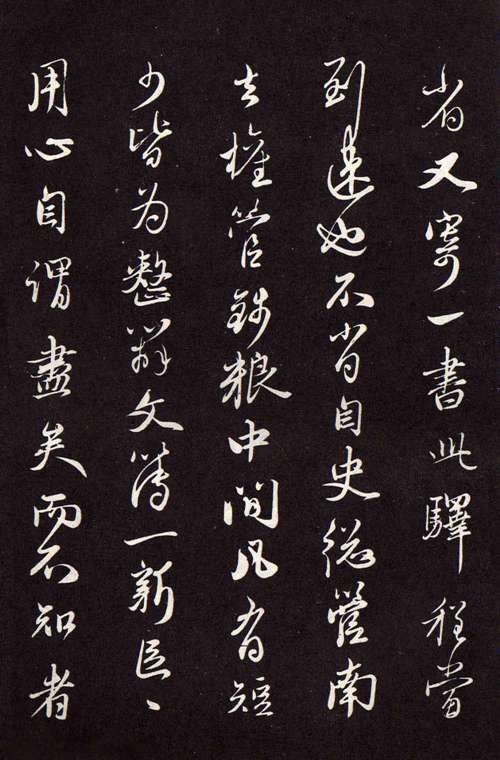 省又寄一書此驛程當
到速也不肖自史總管南
去權管錢粮中間凡有短
少皆為整辦文簿一新區〻
用心自謂盡矣而不知者